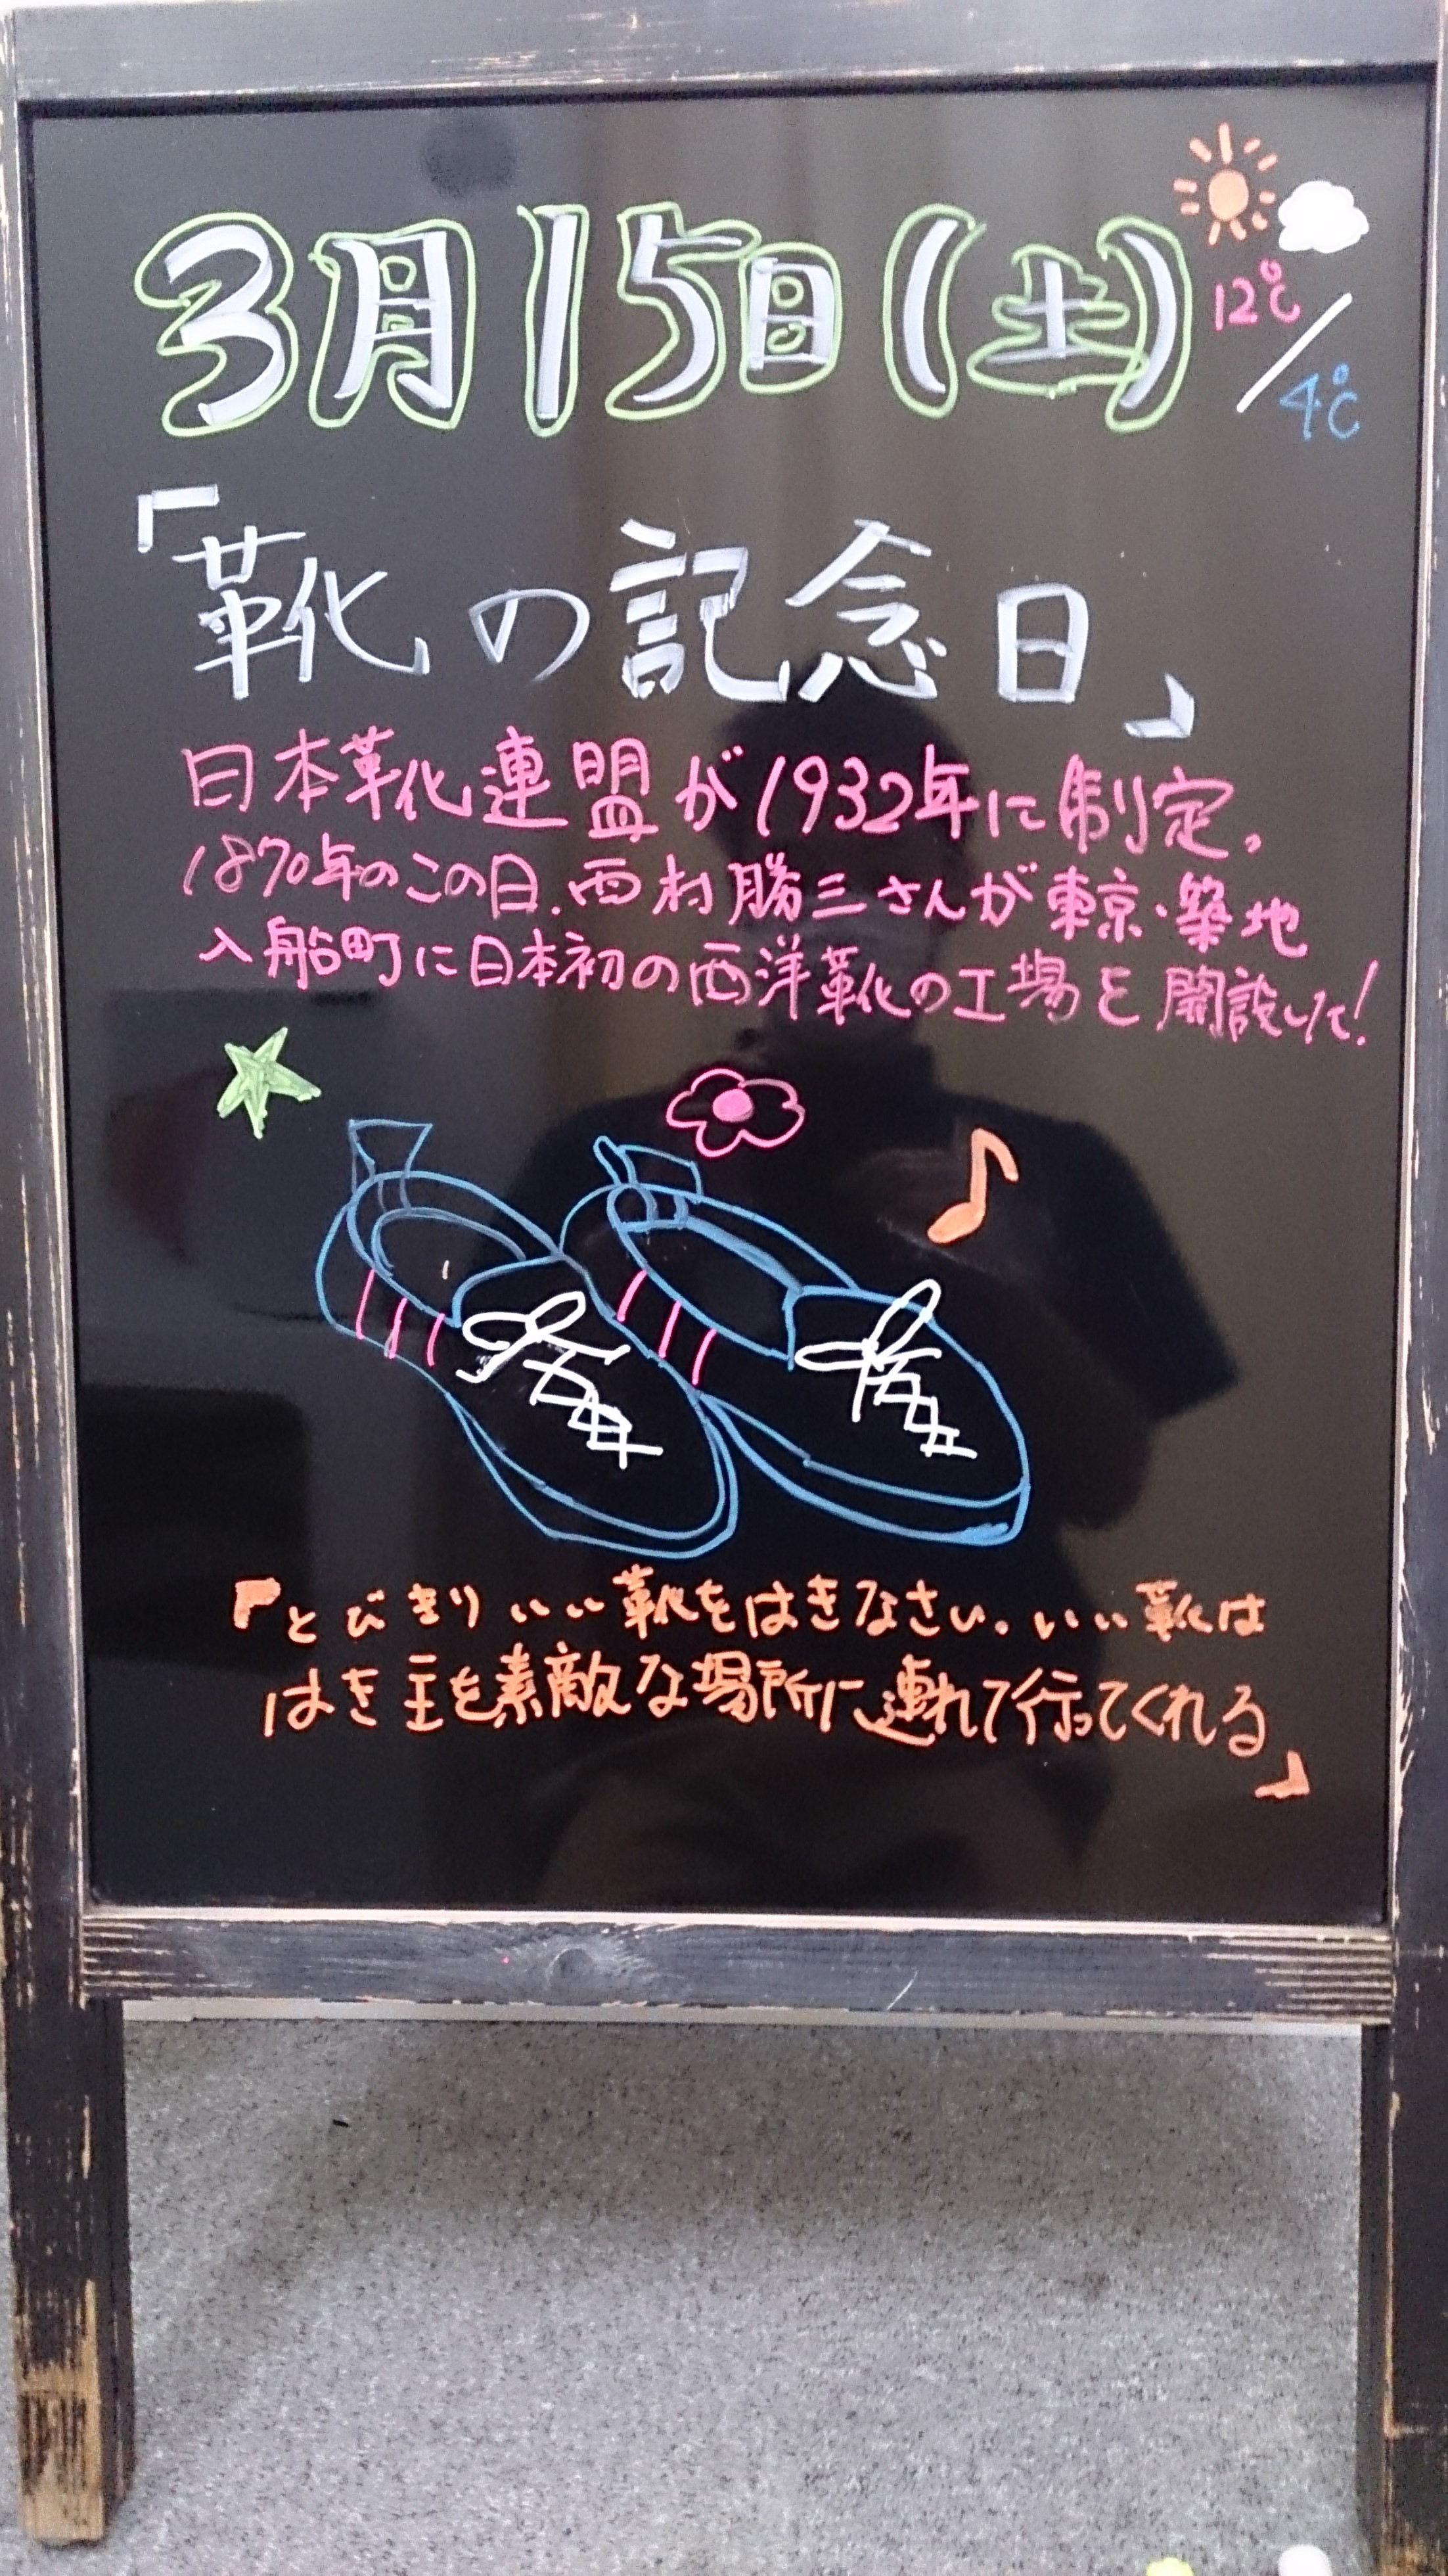 3月15日(土)
12℃/4℃
「靴の記念日」
日本靴連盟が1932年に制定。
1870年のこの日、西村勝三さんが東京・築地
入船町に日本初の西洋靴の工場を開設して!
『とびきりいい靴をはきなさい。いい靴は
はき主を素敵な場所に連れて行ってくれる』